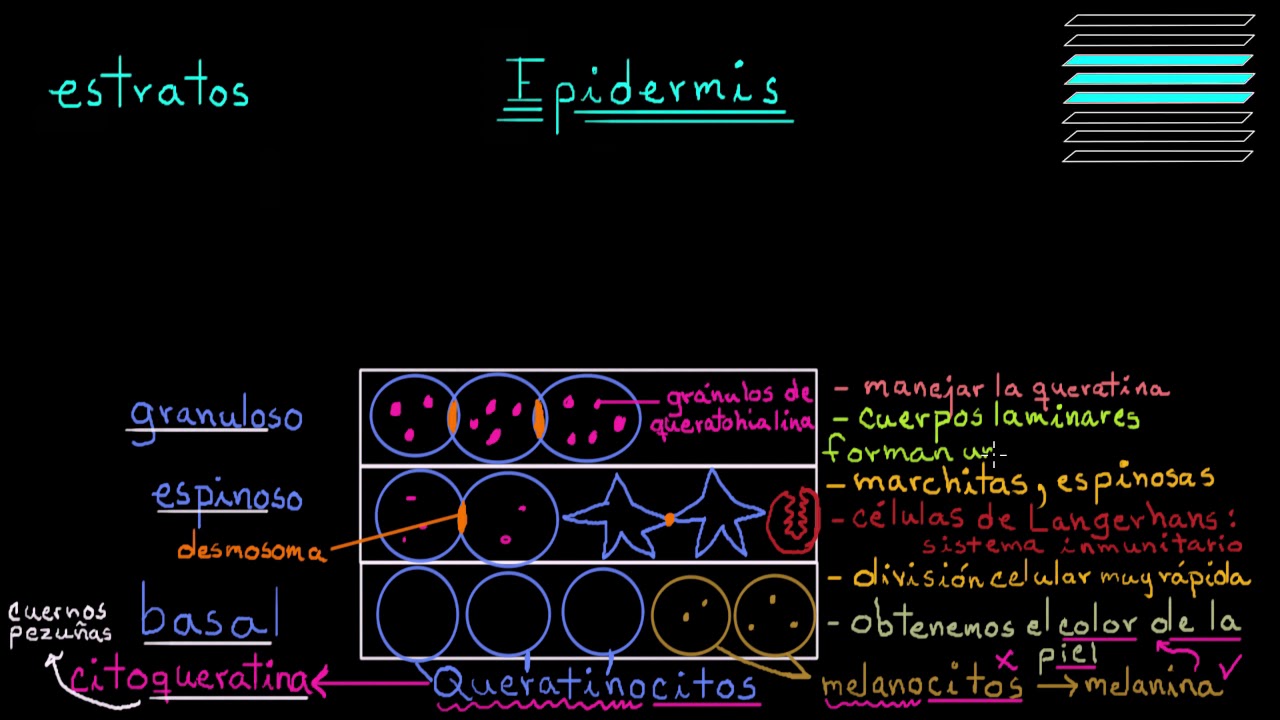 estratos
Epidermis
granuloso
gránulos de
queratohialina
- manejar la queratina
- cuerpos laminares
forman un
espinoso
desmosoma
- marchitas, espinosas
- células de Langerhans:
sistema inmunitario
basal
- división celular muy rápida
- obtenemos el color de la
piel
cuernos
pezuñas
citoqueratina
Queratinocitos
melanocitos → melanina